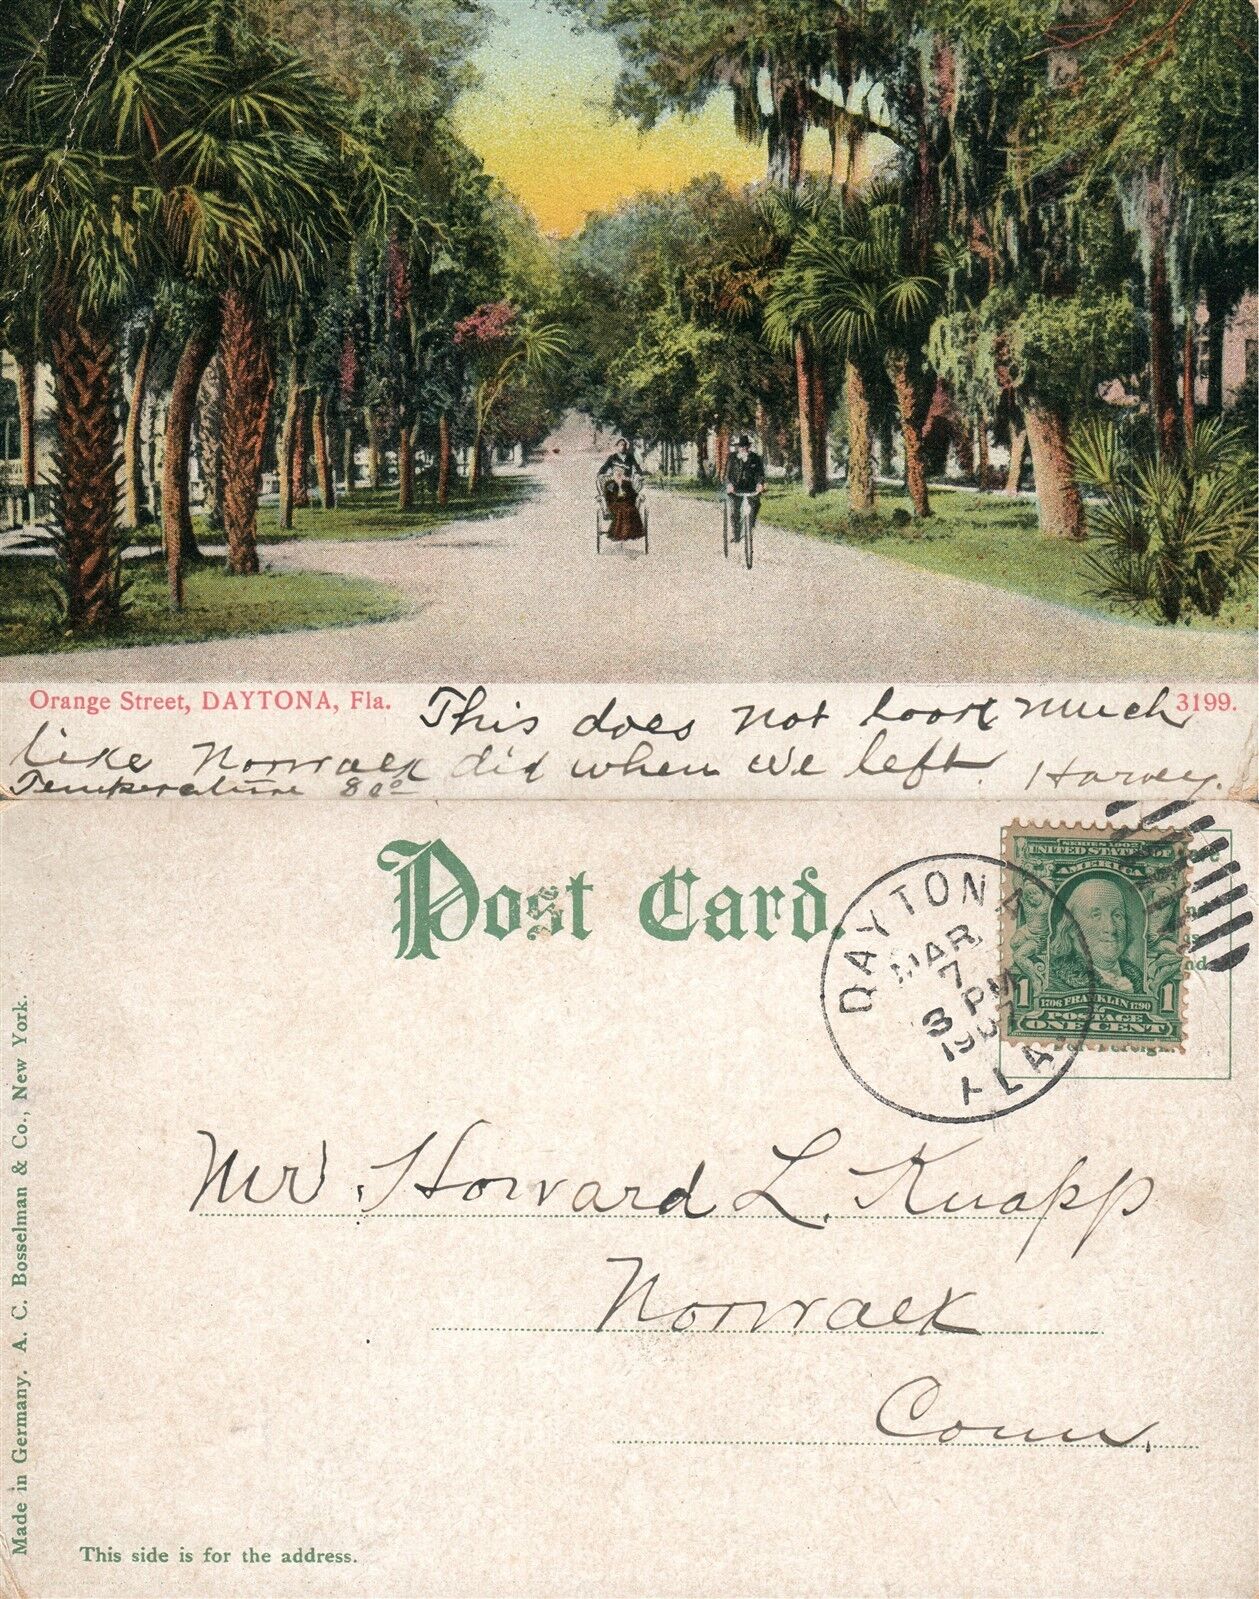 Orange Street, DAYTONA, Fla.
3199.
This does not look much
like Norwalk did when we left. Harvey.
Temperature 80°
Post Card.
SERIES 1902
UNITED STATES OF
AMERICA
1706 FRANKLIN 1790
1 POSTAGE 1
ONE CENT
nd
DAYTONA
MAR
7
3 PM
1907
FLA
Mr. Howard L. Knapp
Norwalk
Conn.
Made in Germany. A. C. Bosselman & Co., New York.
This side is for the address.